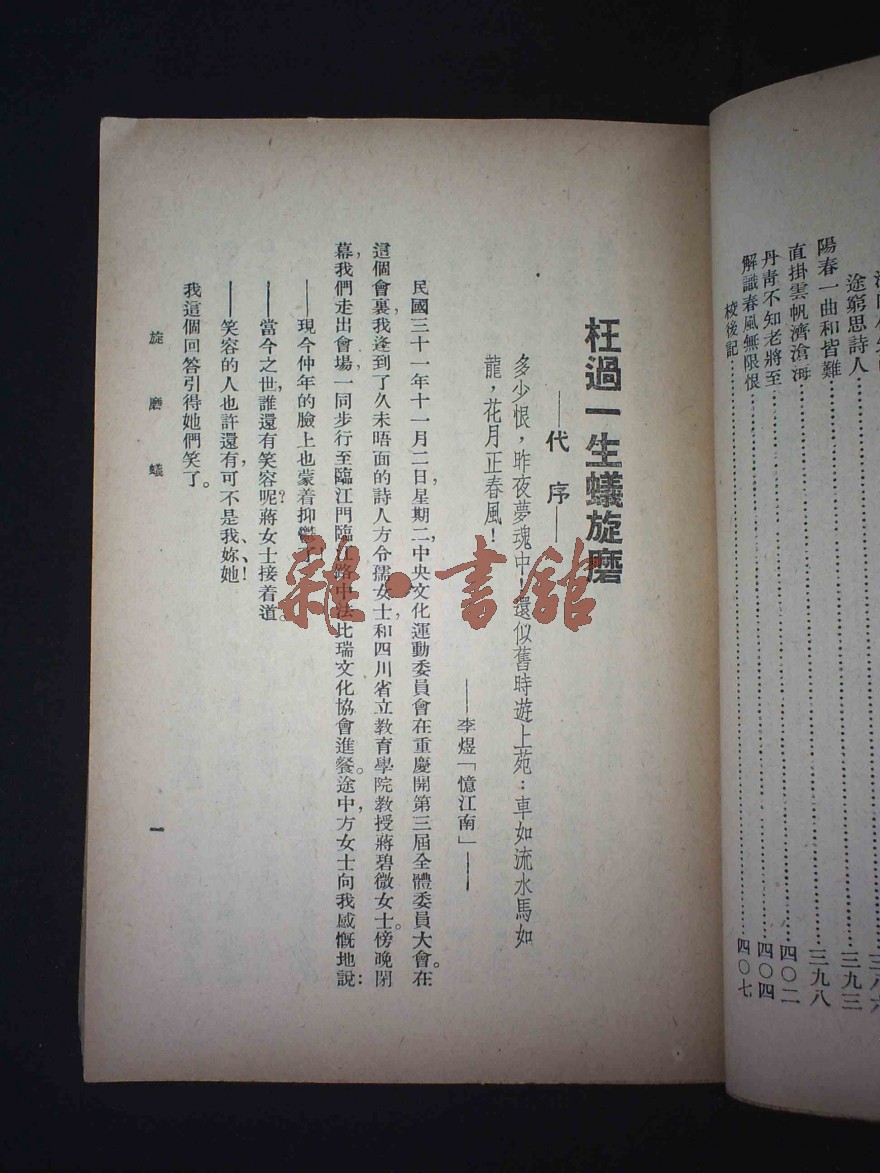 陽春一曲和皆難……三九八
途窮思詩人……三九三
直掛雲帆濟滄海……四〇二
丹青不知老將至……四〇四
解識春風無限恨……四〇七
校後記……
枉過一生蟻旋磨
——代序——
多少恨，昨夜夢魂中！還似舊時遊上苑：車如流水馬如
龍，花月正春風！
——李煜「憶江南」——
民國三十一年十一月二日，星期二，中央文化運動委員會在重慶開第三屆全體委員大會。在
這個會裏，我逢到了久未晤面的詩人方令孺女士，和四川省立教育學院教授蔣碧微女士。傍晚閉
幕，我們走出會場，一同步行至臨江門臨江路中法比瑞文化協會進餐。途中，方女士向我感慨地說：
——現今仲年的臉上也蒙着抑鬱了！
——當今之世，誰還有笑容呢？蔣女士接着道。
——笑容的人也許還有，可不是我、妳、她！
我這個回答引得她們笑了。
旋磨蟻
一
雜·書館